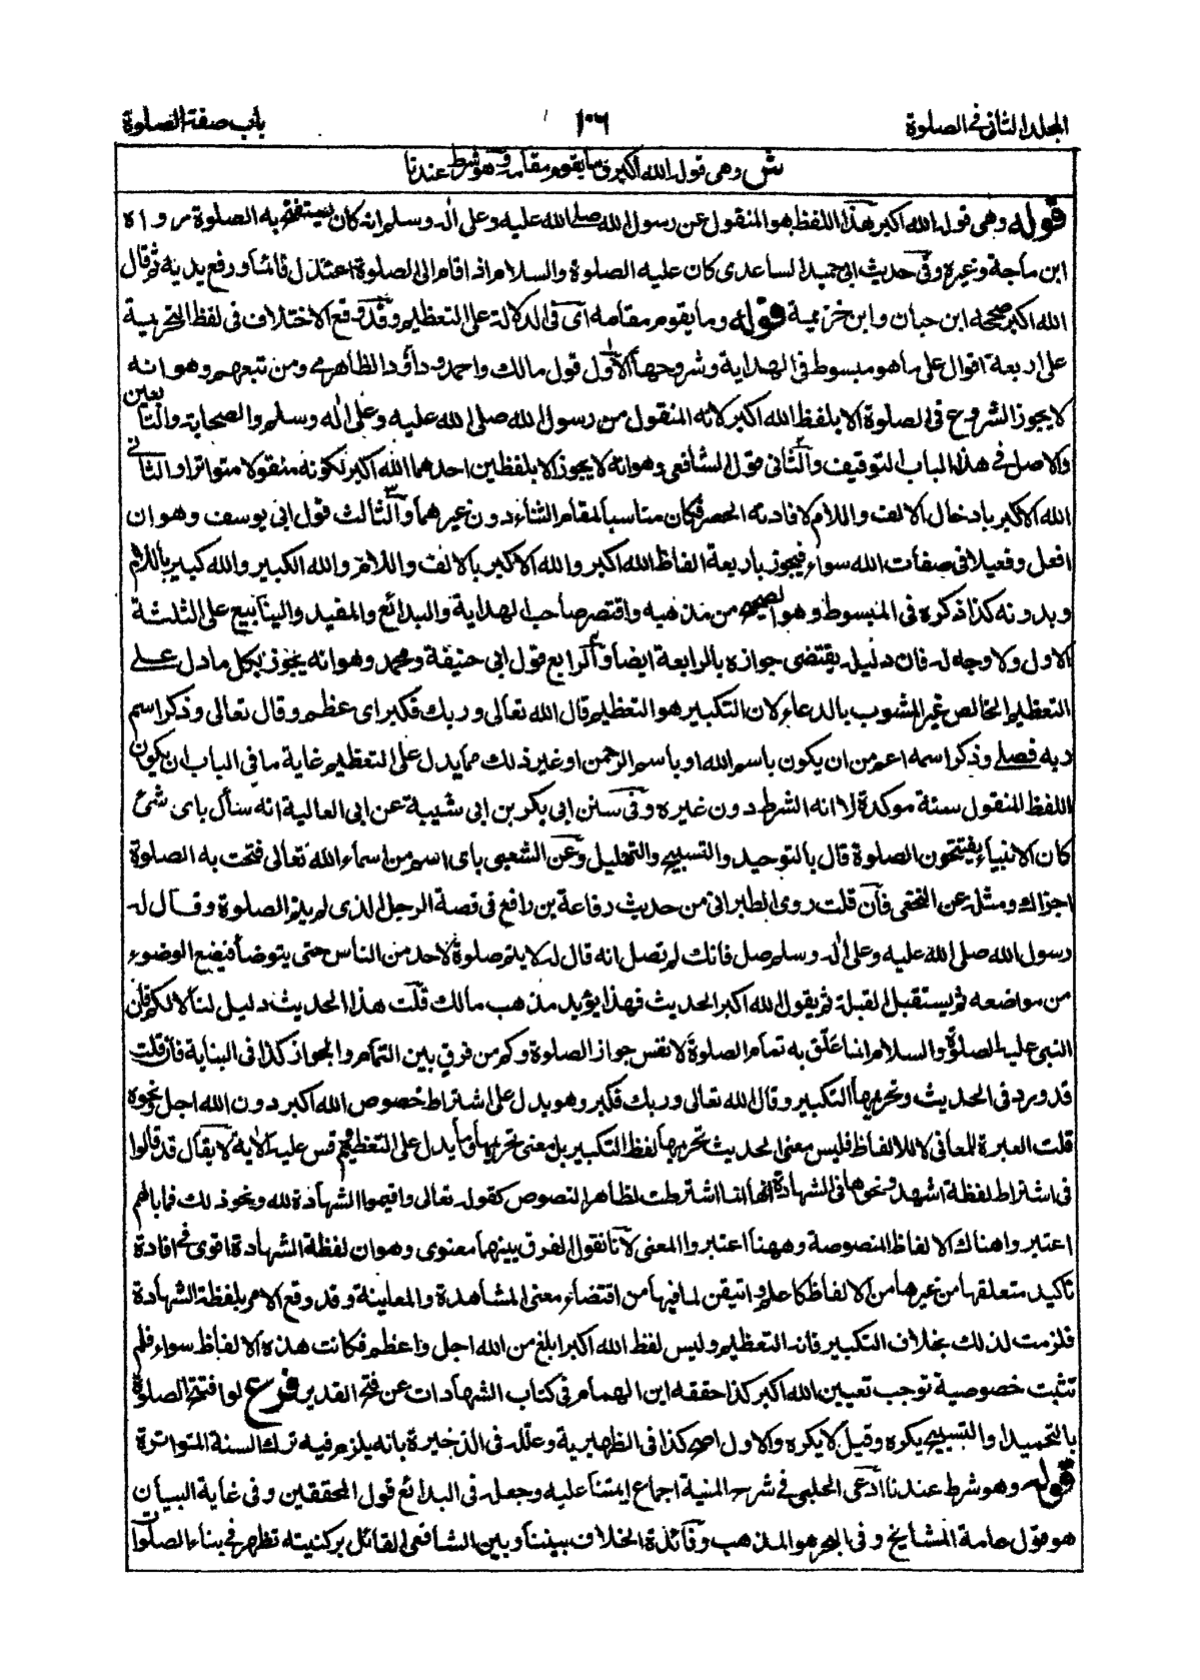 المجلد الثاني في الصلوة
١٠٦
باب صفة الصلوة
ش وهي قول الله اكبر وما يقوم مقامه وهو شرط عندنا
قوله وهي قول الله اكبر هذا اللفظ هو المنقول عن رسول الله صلى الله عليه وعلى اله وسلم انه كان يستفتح به الصلوة رواه
ابن ماجة وغيره وفي حديث ابي حميد الساعدي كان عليه الصلوة والسلام اذا قام الى الصلوة اعتدل قائما ورفع يديه ثم قال
الله اكبر صححه ابن حبان وابن خزيمة قوله وما يقوم مقامه اي في الدلالة على التعظيم وقد وقع الاختلاف في لفظ التحريمة
على اربعة اقوال على ما هو مبسوط في الهداية وشروحها الاول قول مالك واحمد وداؤد الظاهري ومن تبعهم وهو انه
لا يجوز الشروع في الصلوة الا بلفظ الله اكبر لانه المنقول من رسول الله صلى الله عليه وعلى اله وسلم والصحابة والتابعين
والاصل في هذا الباب التوقيف والثاني قول الشافعي وهو انه لا يجوز الا بلفظين احدهما الله اكبر لكونه منقولا متواترا والثاني
الله الاكبر بادخال الالف واللام لافادته الحصر فكان مناسبا لمقام الثناء دون غيرهما والثالث قول ابي يوسف وهو ان
افعل وفعيلا في صفات الله سواء فيجوز باربعة الفاظ الله اكبر والله الاكبر بالالف واللام والله الكبير والله كبير باللام
وبدونه كذا ذكره في المبسوط وهو الصحيح من مذهبه واقتصر صاحب الهداية والبدائع والمفيد والينابيع على الثلثة
الاول ولا وجه له فان دليله يقتضي جوازه بالرابعة ايضا والرابع قول ابي حنيفة ومحمد وهو انه يجوز بكل ما دل على
التعظيم الخالص غير المشوب بالدعاء لان التكبير هو التعظيم قال الله تعالى وربك فكبر اي عظم وقال تعالى وذكر اسم
ربه فصلى وذكر اسمه اعم من ان يكون باسم الله او باسم الرحمن او غير ذلك مما يدل على التعظيم غاية ما في الباب ان يكون
اللفظ المنقول سنة موكدة لا انه الشرط دون غيره وفي سنن ابي بكر بن ابي شيبة عن ابي العالية انه سأل باى شئ
كان الانبياء يفتتحون الصلوة قال بالتوحيد والتسبيح والتهليل وعن الشعبي باى اسم من اسماء الله تعالى فتحت به الصلوة
اجزاك ومثله عن النخعي فان قلت روى الطبراني من حديث رفاعة بن رافع في قصة الرجل الذي لم يتم الصلوة وقال له
رسول الله صلى الله عليه وعلى اله وسلم صل فانك لم تصل انه قال له لا يتم صلوة لاحد من الناس حتى يتوضأ فيضع الوضوء
من مواضعه ثم يستقبل القبلة ثم يقول الله اكبر الحديث فهذا يؤيد مذهب مالك قلت هذا الحديث دليل لنا لا لكم فان
النبي عليه الصلوة والسلام انما علق به تمام الصلوة لا نفس جواز الصلوة وكم من فرق بين التمام والجواز كذا في البناية فان قلت
قد ورد في الحديث وتحريمها التكبير وقال الله تعالى وربك فكبر وهو يدل على اشتراط خصوص الله اكبر دون الله اجل ونحوه
قلت العبرة للمعاني لا للالفاظ فليس معنى الحديث تحريمها لفظ التكبير بل معنى تحريمها وما يدل على التعظيم وقس عليه الاية لا يقال قد قالوا
في اشتراط لفظة اشهد ونحوها في الشهادة انها انما اشترطت لظاهر النصوص كقوله تعالى واقيموا الشهادة لله ونحو ذلك فما بالهم
اعتبروا هناك الالفاظ المنصوصة وههنا اعتبروا المعنى لانا نقول الفرق بينهما معنوي وهو ان لفظة الشهادة اقوى في افادة
تاكيد متعلقها من غيرها من الالفاظ كاعلم واتيقن لما فيها من اقتضاء معنى المشاهدة والمعاينة وقد وقع الامر بلفظة الشهادة
فلزمت لذلك بخلاف التكبير فانه التعظيم وليس لفظ الله اكبر ابلغ من الله اجل واعظم فكانت هذه الالفاظ سواء فلم
تثبت خصوصية توجب تعيين الله اكبر كذا حققه ابن الهمام في كتاب الشهادات عن فتح القدير فرع لو افتتح الصلوة
بالتحميد او التسبيح يكره وقيل لا يكره والاول اصح كذا في الظهيرية وعلله في الذخيرة بانه يلزم فيه ترك السنة المتواترة
قوله وهو شرط عندنا ادعى الحلبي في شرح المنية اجماع ايمتنا عليه وجعله في البدائع قول المحققين وفي غاية البيان
هو قول عامة المشايخ وفي البحر هو المذهب وفائدة الخلاف بيننا وبين الشافعي القائل بركنيته تظهر في بناء الصلوات